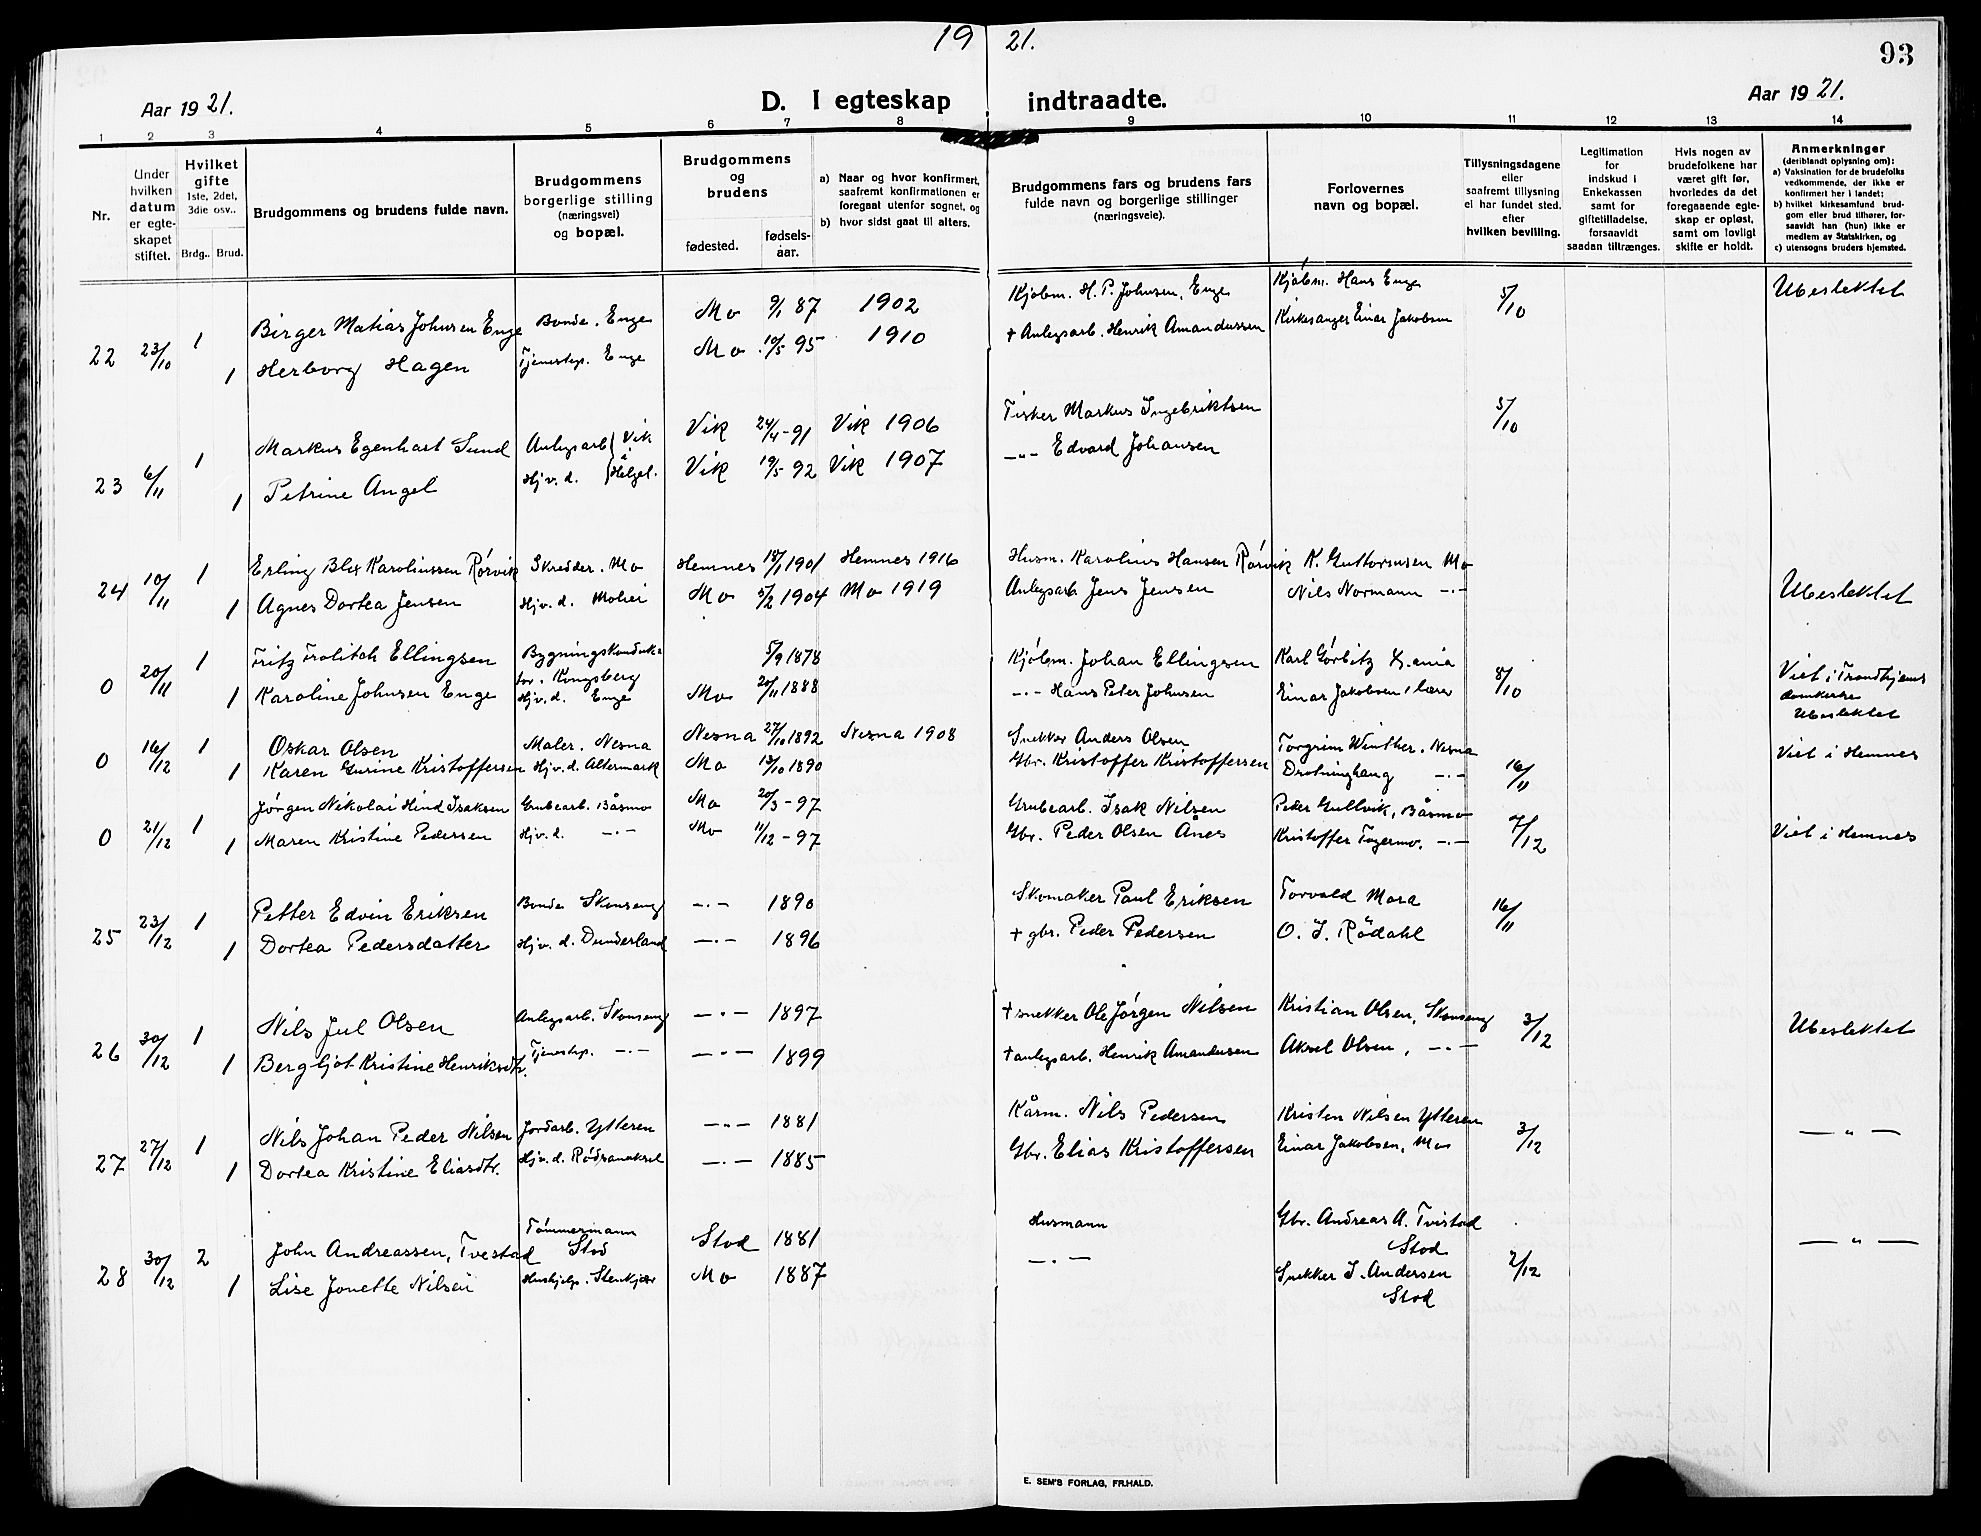 19 21.
93
Aar 1921.
D. I egteskap indtraadte.
Aar 1921.
1 2 3 4 5 6 7 8 9 10 11 12 13 14
Nr.
Under hvilken datum er egteskapet stiftet.
Hvilket gifte 1ste, 2det, 3die osv..
Brdg.. Brud.
Brudgommens og brudens fulde navn.
Brudgommens borgerlige stilling (næringsvei) og bopæl.
Brudgommens og brudens
fødested. fødsels-aar.
a) Naar og hvor konfirmert, saafremt konfirmationen er foregaat utenfor sognet, og
b) hvor sidst gaat til alters.
Brudgommens fars og brudens fars fulde navn og borgerlige stillinger (næringsveie).
Forlovernes navn og bopæl.
Tillysningsdagene eller saafremt tillysning ei har fundet sted, efter hvilken bevilling.
Legitimation for indskud i Enkekassen samt for giftetilladelse, forsaavidt saadan tiltrænges.
Hvis nogen av brudefolkene har været gift før, hvorledes da det foregaaende egteskap er opløst, samt om lovligt skifte er holdt.
Anmerkninger (deriblandt oplysning om):
a) Vaksination for de brudefolks vedkommende, der ikke er konfirmert her i landet;
b) hvilket kirkesamfund brudgom eller brud tilhører, forsaavidt han (hun) ikke er medlem av Statskirken, og
c) utensogns bruders hjemsted.
22 23/10 1 Birger Matias Johnsen Enge Bonde. Enge Mo 9/1 87 1902 Kjøbm. H. P. Johnsen, Enge Kjøbm. Hans Enge 5/10 Ubeslektet
1 Herborg Hagen Tjenestep. Enge Mo 10/5 95 1910 + Anlegsarb. Henrik Amandussen Kirkesanger Einar Jakobsen
23 6/11 1 Markus Egenhart Sund Anlegsarb Vik Vik 24/4 - 91 Vik 1906 Fisker Markus Ingebriktsen 5/10
1 Petrine Angel Hjv. d. i Helgel. Vik 19/5 92 Vik 1907 -"- Edvard Johansen
24 10/11 1 Erling Blix Karoliussen Rørvik Skredder. Mo Hemnes 18/1 1901 Hemnes 1916 Husm. Karolius Hansen Rørvik K. Guttormsen Mo
1 Agnes Dortea Jensen Hjv. d. Mohei Mo 5/2 1904 Mo 1919 Anlegsarb. Jens Jensen Nils Normann -"- Ubeslektet
0 20/11 1 Fritz Frolitch Ellingsen Bygningskonduktør. Kongsberg 5/9 1878 Kjøbm. Johan Ellingsen Karl Görbitz Kr.ania 8/10 Viet i Trondhjems domkirke
1 Karoline Johnsen Enge Hjv. d. Enge Mo 20/11 1888 -"- Hans Peter Johnsen Einar Jakobsen, lærer Ubeslektet
0 16/12 1 Oskar Olsen Maler. Nesna Nesna 27/10 1892 Nesna 1908 Snekker Anders Olsen Torgrim Winther. Nesna 16/11 Viet i Hemnes
1 Karen Gurine Kristoffersen Hjv. d. Altermark Mo 13/10 1890 Gbr. Kristoffer Kristoffersen Drotninghaug -"-
0 21/12 1 Jørgen Nikolai Hind Isaksen Grubearb. Båsmo Mo 20/3 - 97 Grubearb. Isak Nilsen Peder Gullvik, Båsmo 7/12 Viet i Hemnes
1 Maren Kristine Pedersen Hjv. d. -"- Mo 11/12 - 97 Gbr. Peder Olsen Ånes Kristoffer Fagermo. -"-
25 23/12 1 Petter Edvin Eriksen Bonde Skonseng -"- 1890 Skomaker Paul Eriksen Torvald Mora 16/11
1 Dortea Pedersdatter Hjv. d. Dunderland -"- 1896 + gbr. Peder Pedersen O. J. Rödahl
26 30/12 1 Nils Jul Olsen Anlegsarb. Skonseng -"- 1897 + snekker Ole Jørgen Nilsen Kristian Olsen, Skonseng 3/12 Ubeslektet
1 Bergljot Kristine Henriksdtr. Tjenestep. -"- -"- 1899 + anlegsarb. Henrik Amandussen Aksel Olsen, -"-
27 27/12 1 Nils Johan Peder Nilsen Jordarb. Ytteren -"- 1881 Kårm. Nils Pedersen Kristen Nilsen Ytteren 3/12 -"-
1 Dortea Kristine Eliasdtr. Hjv. d. -"- 1885 Gbr. Elias Kristoffersen Einar Jakobsen, Mo
28 30/12 2 John Andreassen, Tvestad Tømmermann Stod Stod 1881 Husmann Gbr. Andreas A. Tvistad Stod 2/12 -"-
1 Lise Jonette Nilsen Hushjelp. Stenkjær Mo 1887 -"- Snekker J. Andersen Stod
E. SEM'S FORLAG, FR.HALD.